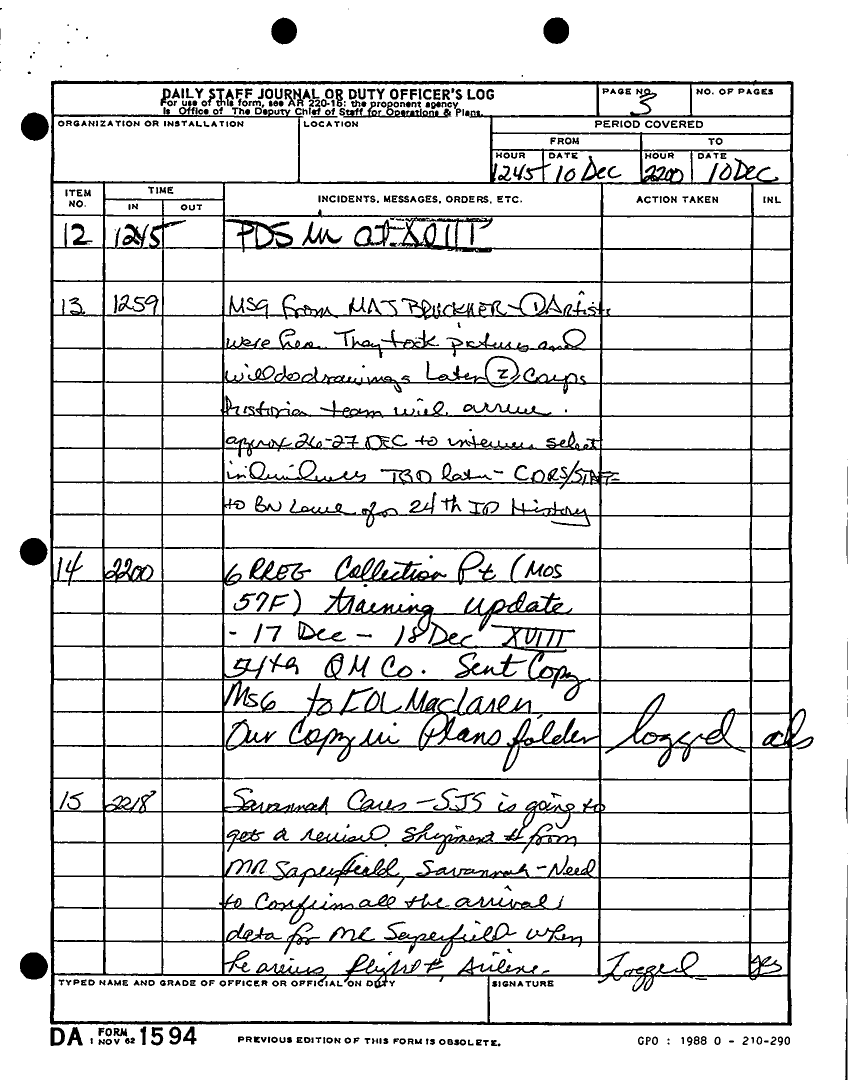 DAILY STAFF JOURNAL OR DUTY OFFICER'S LOG
For use of this form, see AR 220-15; the proponent agency
is Office of The Deputy Chief of Staff for Operations & Plans.
PAGE NO.
3
NO. OF PAGES
ORGANIZATION OR INSTALLATION
LOCATION
PERIOD COVERED
FROM
TO
HOUR
DATE
HOUR
DATE
1245
10 Dec
2200
10 Dec
ITEM NO.
TIME
IN
OUT
INCIDENTS, MESSAGES, ORDERS, ETC.
ACTION TAKEN
INL
12 1245 PDS in at XVIII
13 1259 MSG from MAJ BRUCKNER - (1) Artists
were here. They took pictures and
will do drawings Later (2) Corps
historian team will arrive
approx 26-27 DEC to interview select
TBD later - CDRS/STAFF
to BN Level for 24th ID History
14 2200 6 RREG Collection Pt (MOS
57F) training update
- 17 Dec - 18 Dec XVIII
54th QM Co. Sent Copy
MSG to COL Maclaren
Our Copy in Plans folder logged
15 2218 Savannah Cares - SJS is going to
get a revised Shipment # from
MR Saperfield, Savannah - Need
to Confirm all the arrival
data for MR Saperfield when
he arrives, flight #, Airline - Logged
TYPED NAME AND GRADE OF OFFICER OR OFFICIAL ON DUTY
SIGNATURE
DA FORM 1 NOV 62 1594
PREVIOUS EDITION OF THIS FORM IS OBSOLETE.
GPO : 1988 O - 210-290